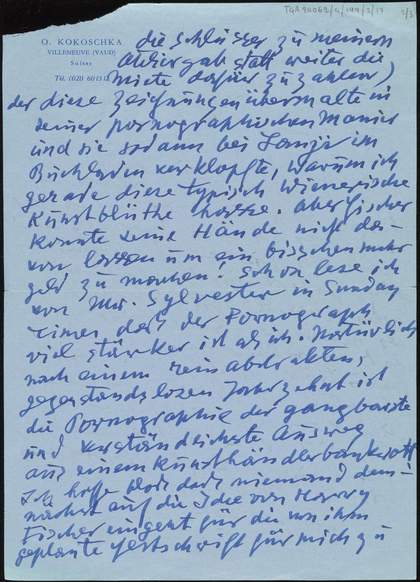 TGA 90062/4/144/2/17
2/3
O. KOKOSCHKA
VILLENEUVE (VAUD)
Suisse
Tél. (021) 60 13
die Schlüssel zu meinem
Atelier gab statt weiter die
Miete dafür zu zahlen)
der diese Zeichnungen übermalte in
seiner pornographischen Manier
und sie sodann bei im
Buchladen verklopfte, warum ich
gerade diese typisch Wienerische
Kunstblüthe hasse. Aber Fischer
konnte seine Hände nicht da-
von lassen um ein bisschen mehr
Geld zu machen! Schon lese ich
von Mr. Sylvester in Sunday
Times dass der Pornograph
viel stärker ist als ich. Natürlich
nach einem rein abstrakten,
gegenstandslosen Jahrzehnt ist
die Pornographie der gangbarste
und verständlichste Ausweg
aus einem Kunsthändlerbankrott
Ich hoffe bloss dass niemand dem-
nächst auf die Idee von Harry
Fischer eingeht für die von ihm
geplante Festschrift für mich zu